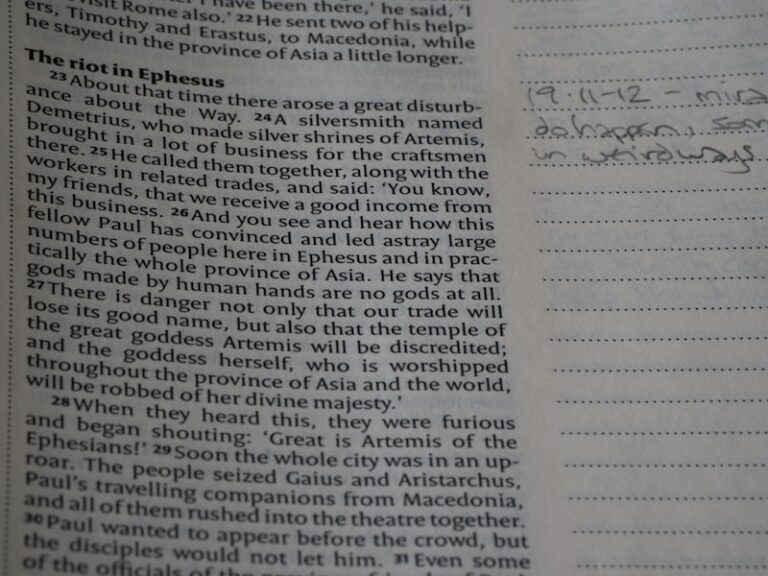 have been there,' he said, 'I
visit Rome also.' 22 He sent two of his help-
ers, Timothy and Erastus, to Macedonia, while
he stayed in the province of Asia a little longer.
The riot in Ephesus
23 About that time there arose a great disturb-
ance about the Way. 24 A silversmith named
Demetrius, who made silver shrines of Artemis,
brought in a lot of business for the craftsmen
there. 25 He called them together, along with the
workers in related trades, and said: 'You know,
my friends, that we receive a good income from
this business. 26 And you see and hear how this
fellow Paul has convinced and led astray large
numbers of people here in Ephesus and in prac-
tically the whole province of Asia. He says that
gods made by human hands are no gods at all.
27 There is danger not only that our trade will
lose its good name, but also that the temple of
the great goddess Artemis will be discredited;
and the goddess herself, who is worshipped
throughout the province of Asia and the world,
will be robbed of her divine majesty.'
28 When they heard this, they were furious
and began shouting: 'Great is Artemis of the
Ephesians!' 29 Soon the whole city was in an up-
roar. The people seized Gaius and Aristarchus,
Paul's travelling companions from Macedonia,
and all of them rushed into the theatre together.
30 Paul wanted to appear before the crowd, but
the disciples would not let him. 31 Even some
of the officials of the
19.11-12 - mira
do happen, som
in weird ways